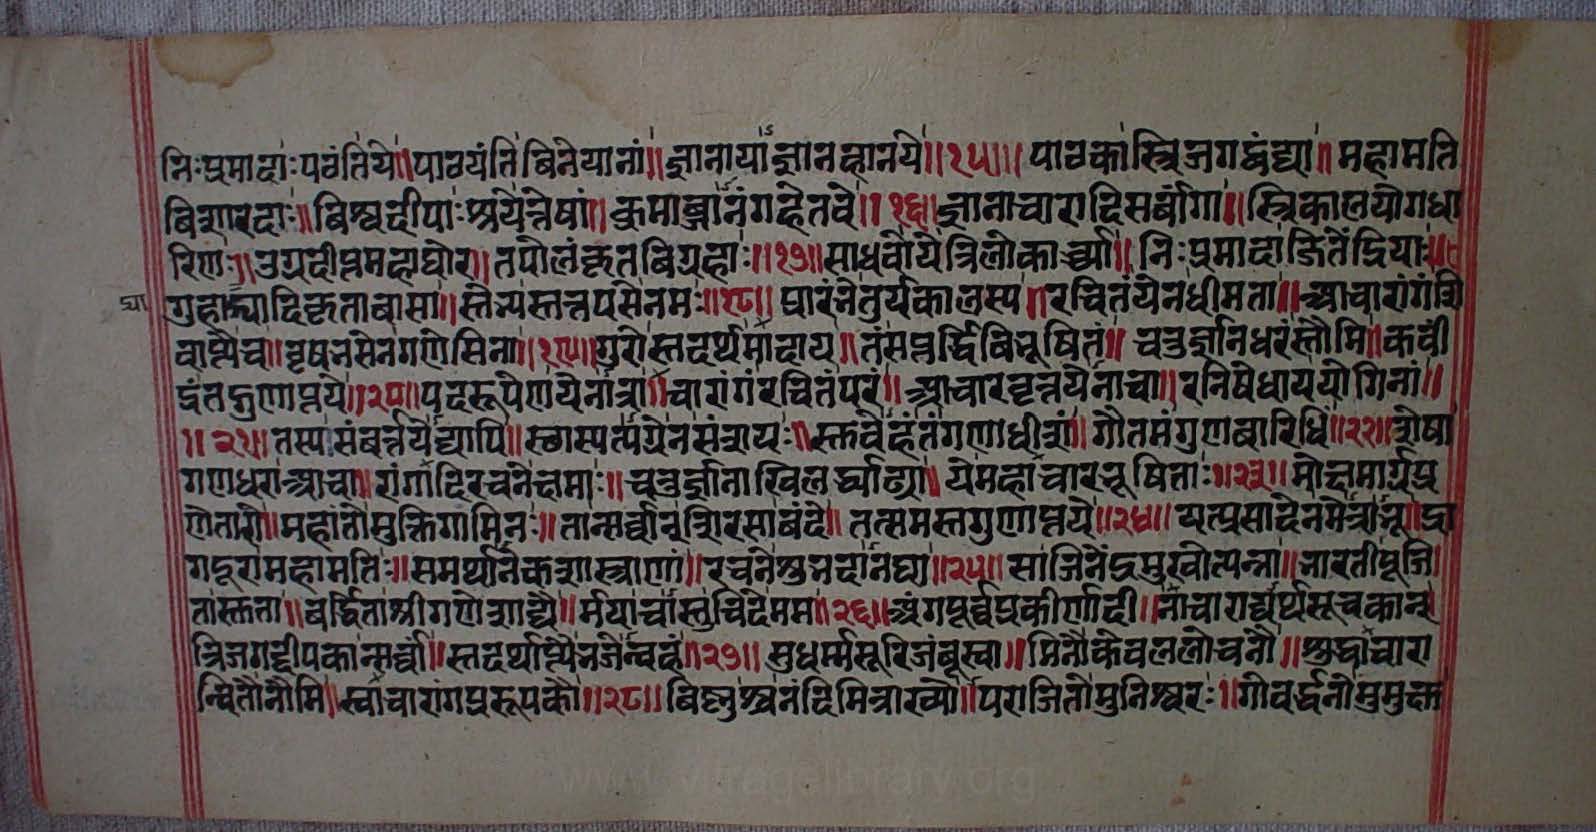 निःप्रमादाः पठंति ये॥ पाठयंति विनेयानां॥ ज्ञानाया ज्ञानहानये॥१५॥ पाठकास्त्रिजगद्वंद्या॥ महामति
विशारदाः॥ विश्वदीपाः श्रये तेषां॥ क्रमाब्जान् गहेतवे॥१६॥ ज्ञानाचारादिसर्वांगा॥ स्त्रिकालयोगधा
रिणः॥ उग्रदीप्तमहाघोर॥ तपोलंकृतविग्रहाः॥१७॥ साधवो ये त्रिलोकार्च्या॥ निःप्रमादा जितेंद्रियाः॥
गुहाद्यादिकृतावासा॥ स्तेभ्यस्तत्तपसे नमः॥१८॥ प्रारंभे तुर्यकालस्य॥ रचितं येन धीमता॥ आचारांगं शि
वाप्त्यै च॥ वृषभसेनगणेसिना॥१९॥ गुरोस्तदर्थमादाय॥ तं सप्तर्द्धिविभूषितं॥ चतुर्ज्ञानधरं स्तौमि॥ कवीं
द्रं तद्गुणाप्तये॥२०॥ पदरूपेण येनात्रा॥ चारांगं रचितं परं॥ आचारवृत्तये नाचा॥ रनिषेधाय योगिनां॥
॥२१॥ तस्य संवर्त्तयेद्यापि॥ स्तवे हं तं गणाधीशं॥ गौतमं गुणवारिधिं॥२२॥ शेषा
गणधरा आचा॥ रांगादिरचने क्षमाः॥ चतुर्ज्ञानाखिलर्द्ध्याढ्या॥ ये महाचारभूषिताः॥२३॥ मोक्षमार्गप्र
णेतारो॥ महांतो मुक्तिगामिनः॥ तान्सर्वान् शिरसा वंदे॥ तत्समस्तगुणाप्तये॥२४॥ यत्प्रसादेन मेत्राभू॥द्रा
गदूरा महामतिः॥ समर्थानेकशास्त्राणां॥ रचने शुभदानघा॥२५॥ सा जिनेंद्रमुखोत्पन्ना॥ भारती पूजि
ता स्तुता॥ वंदिता श्रीगणेशाद्यै॥ र्मया चास्तु चिदे मम॥२६॥ अंगपूर्वप्रकीर्णादी॥ नाचाराद्यर्थसूचकान्
त्रिजगद्दीपकान्सर्वां॥ स्तदर्थाप्त्यै भजेन्वहं॥२७॥ सुधर्म्मसूरिजंबूस्वा॥ मिनौ केवललोचनौ॥ शुद्धाचारा
न्वितौ नौमि॥ स्वाचारांगप्ररूपकौ॥२८॥ विष्णुश्च नंदिमित्राख्यो॥ पराजितो मुनिश्वरः॥ गोवर्द्धनो मुमुक्षु